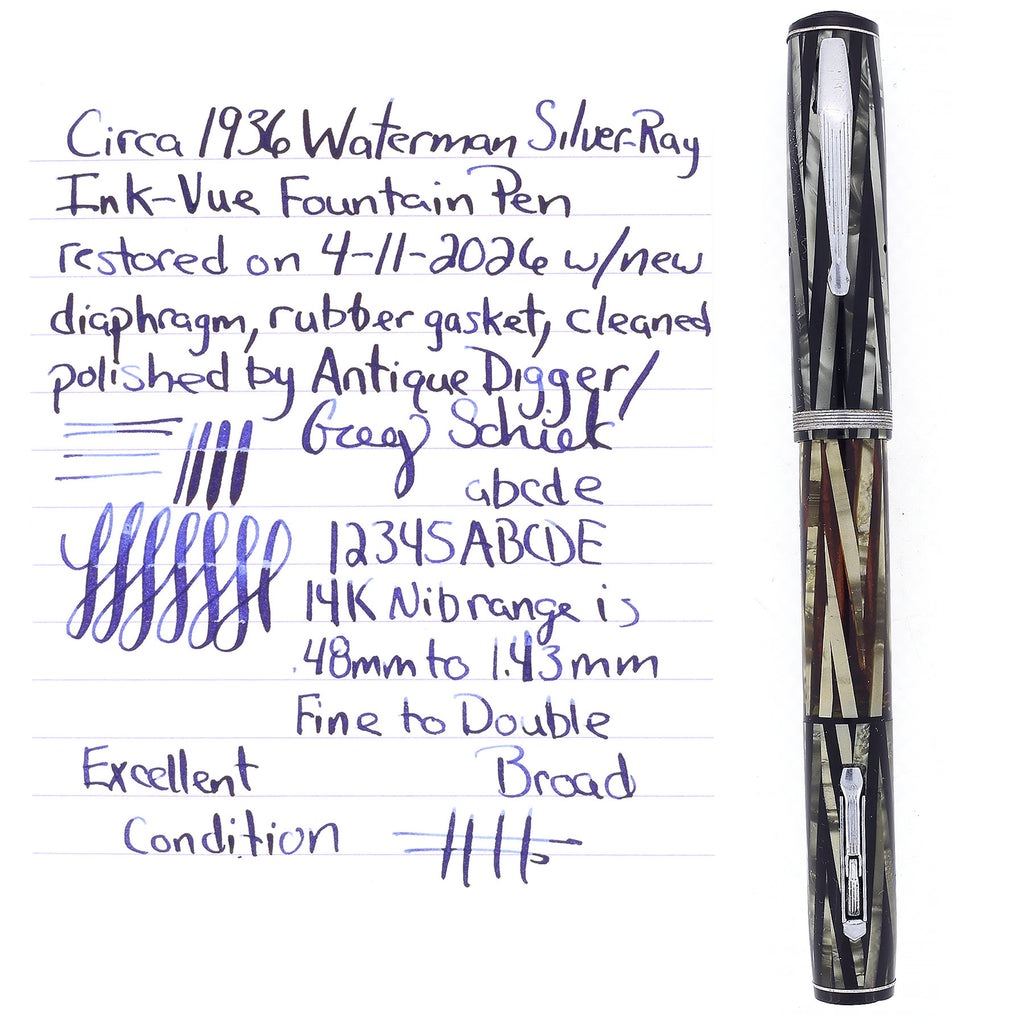 Circa 1936 Waterman Silver-Ray
Ink-Vue Fountain Pen
restored on 4-11-2026 w/new
diaphragm, rubber gasket, cleaned
polished by Antique Digger/
Greg Schiek
abcde
12345ABCDE
14K Nib range is
.48mm to 1.43mm
Fine to Double
Excellent Broad
Condition